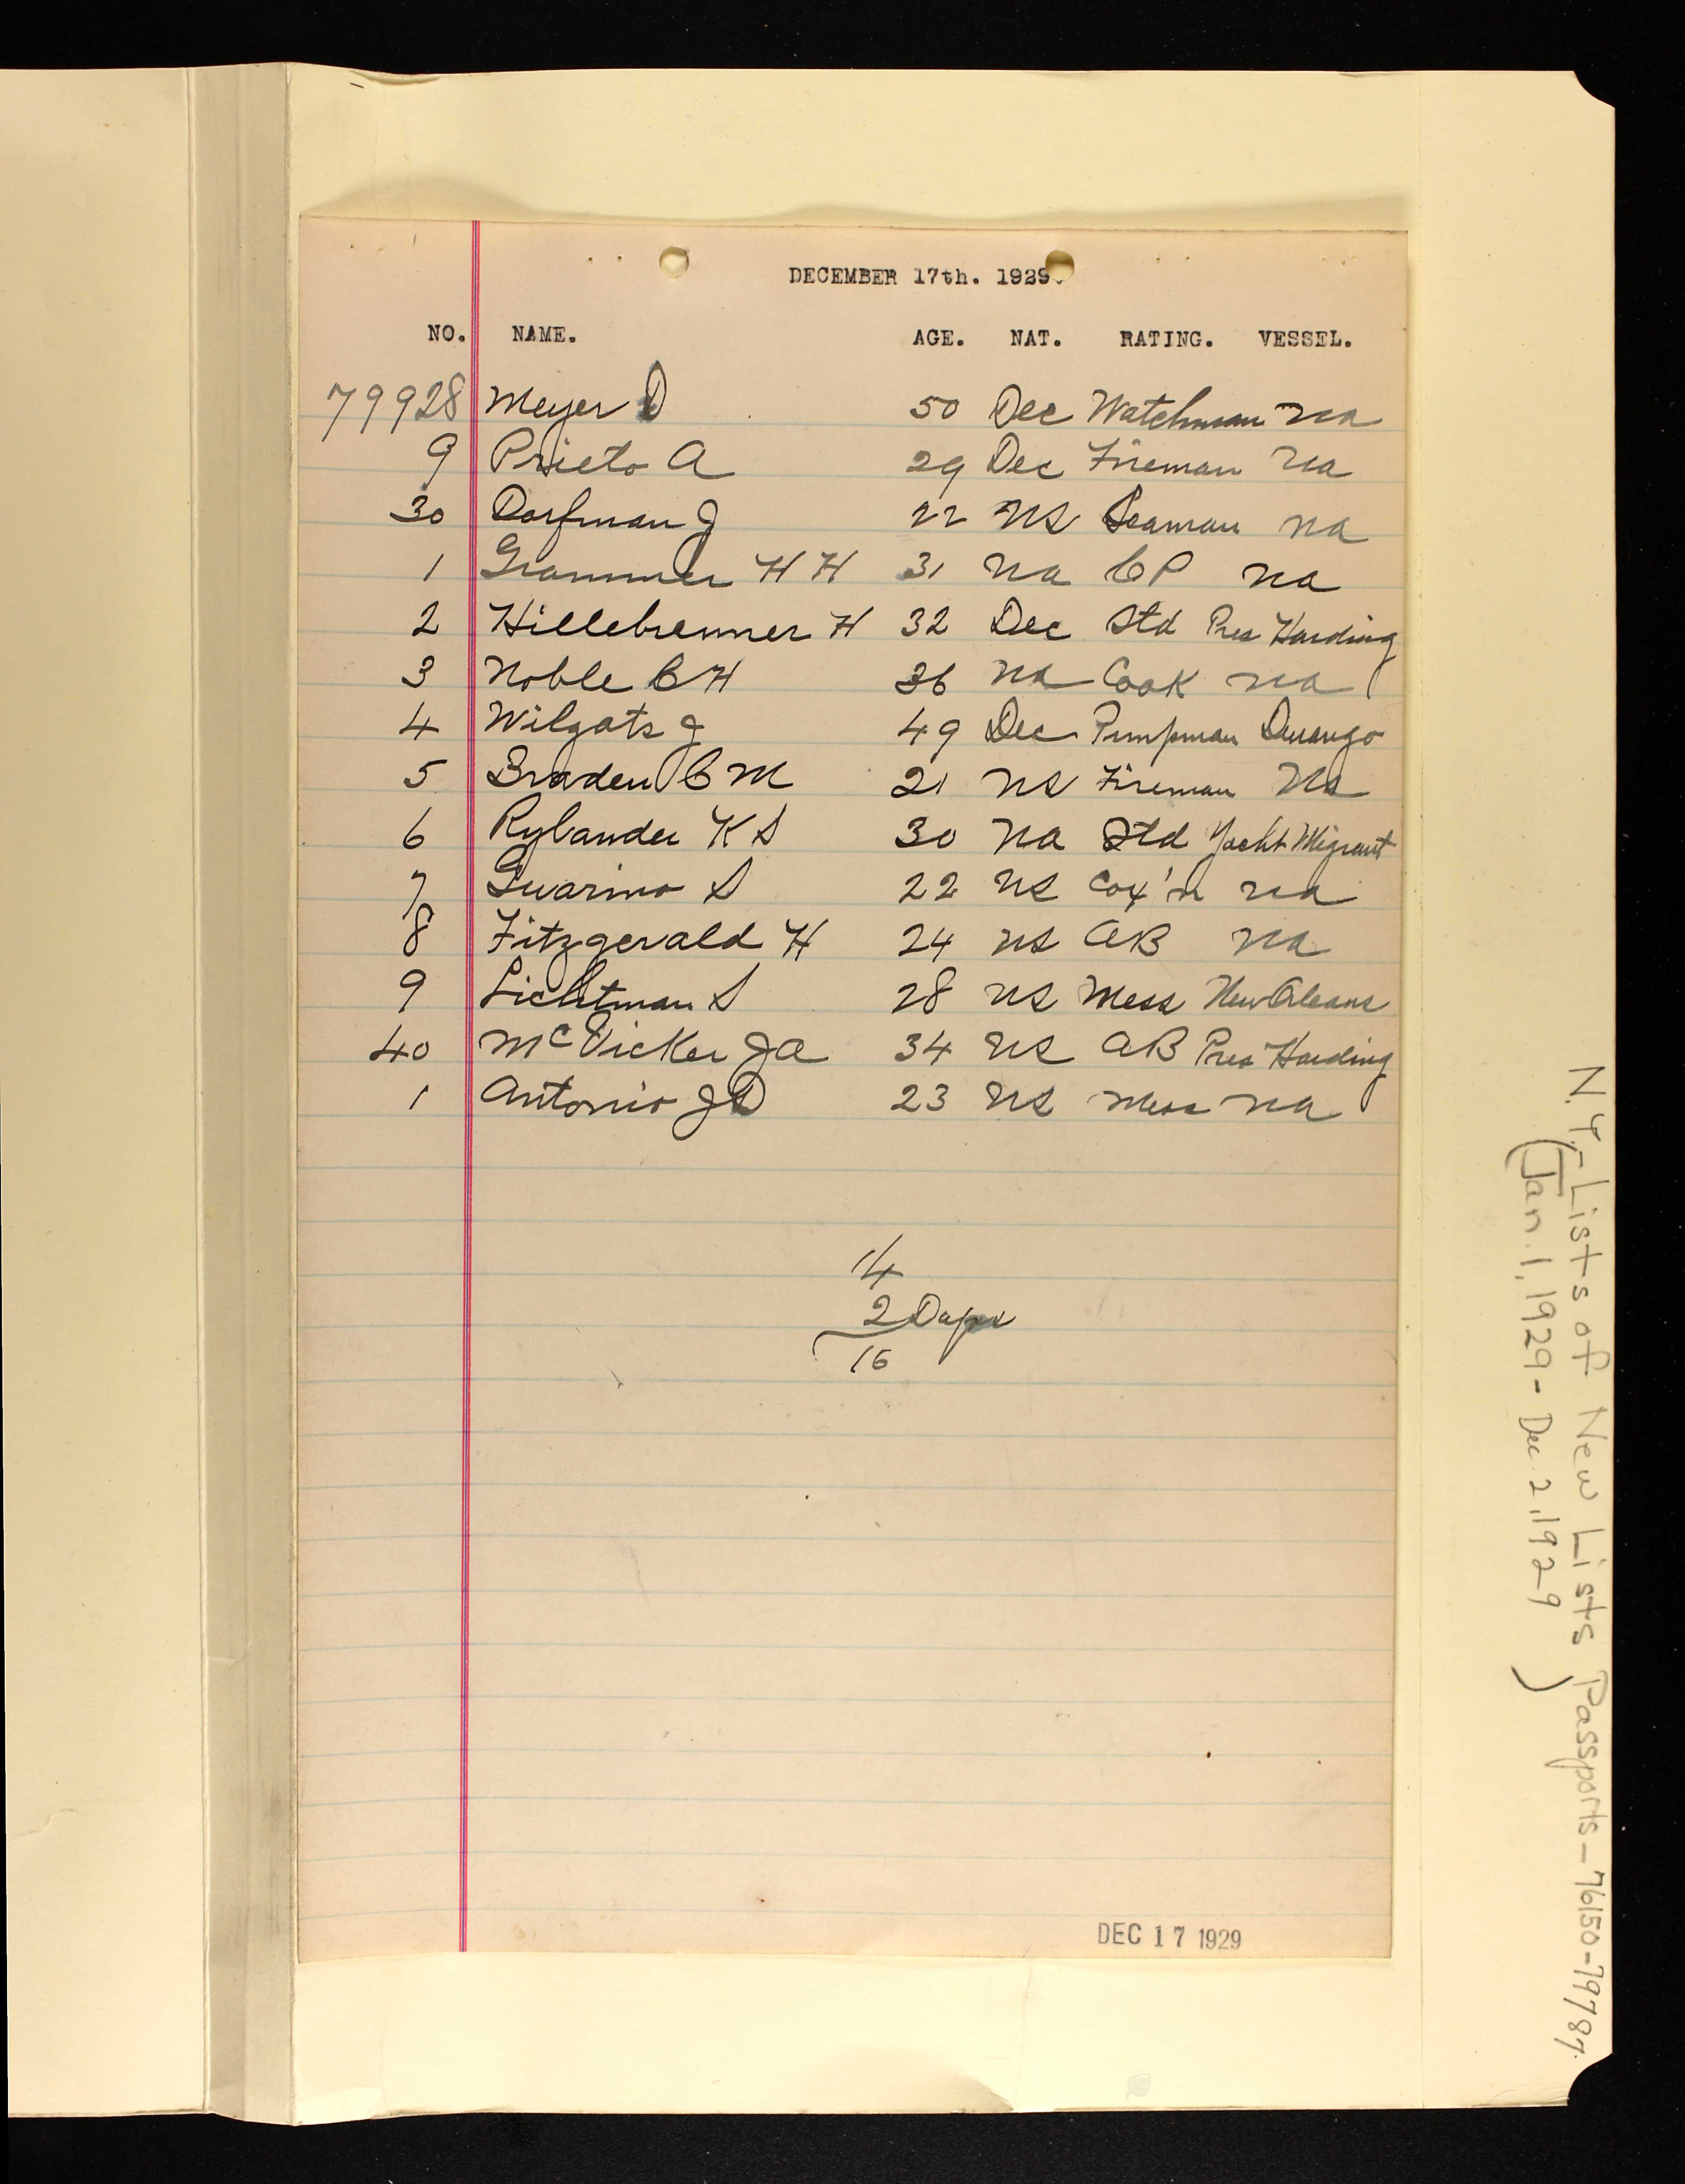 DECEMBER 17th. 1929.
NO. NAME. AGE. NAT. RATING. VESSEL.
79928 Meyer D 50 Dec Watchman na
9 Prieto A 29 Dec Fireman na
30 Dorfman J 22 NS Seaman na
1 Grammer H H 31 na CP na
2 Hillebrenner H 32 Dec Std Pres Harding
3 Noble C H 36 na Cook na
4 Wilgats J 49 Dec Pumpman Durango
5 Braden C M 21 NS Fireman Na
6 Rylander K S 30 na Std Yacht Migrant
7 Guarino S 22 NS Cox'n na
8 Fitzgerald H 24 NS AB na
9 Lichtman S 28 NS Mess New Orleans
40 McVicker J A 34 NS AB Pres Harding
1 Antonio J D 23 NS Mess na
14
2 Dups
16
DEC 17 1929
N.Y.-Lists of New Lists Passports-76150-79787
(Jan. 1, 1929- Dec 2, 1929)